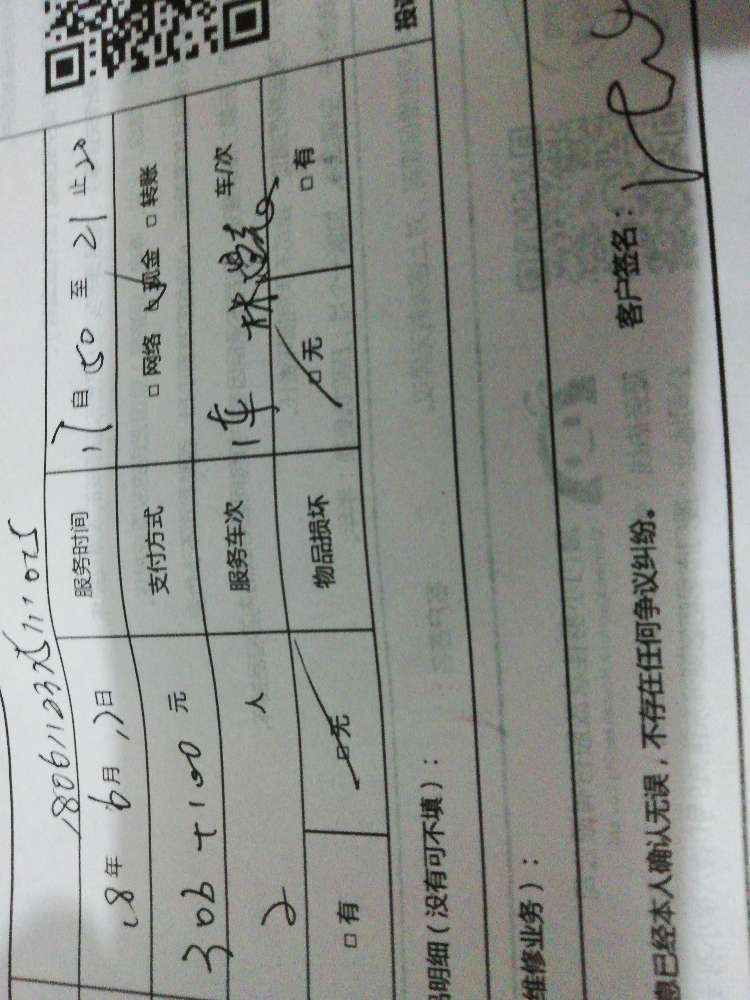 18年 6月 17日 服务时间 17自50 至 21止20
300+100 元 支付方式 □网络 现金 □转账
2 人 服务车次 1车 车/次
□有 □无 物品损坏 □无 □有
明细（没有可不填）：
维修业务）：
息已经本人确认无误，不存在任何争议纠纷。 客户签名：